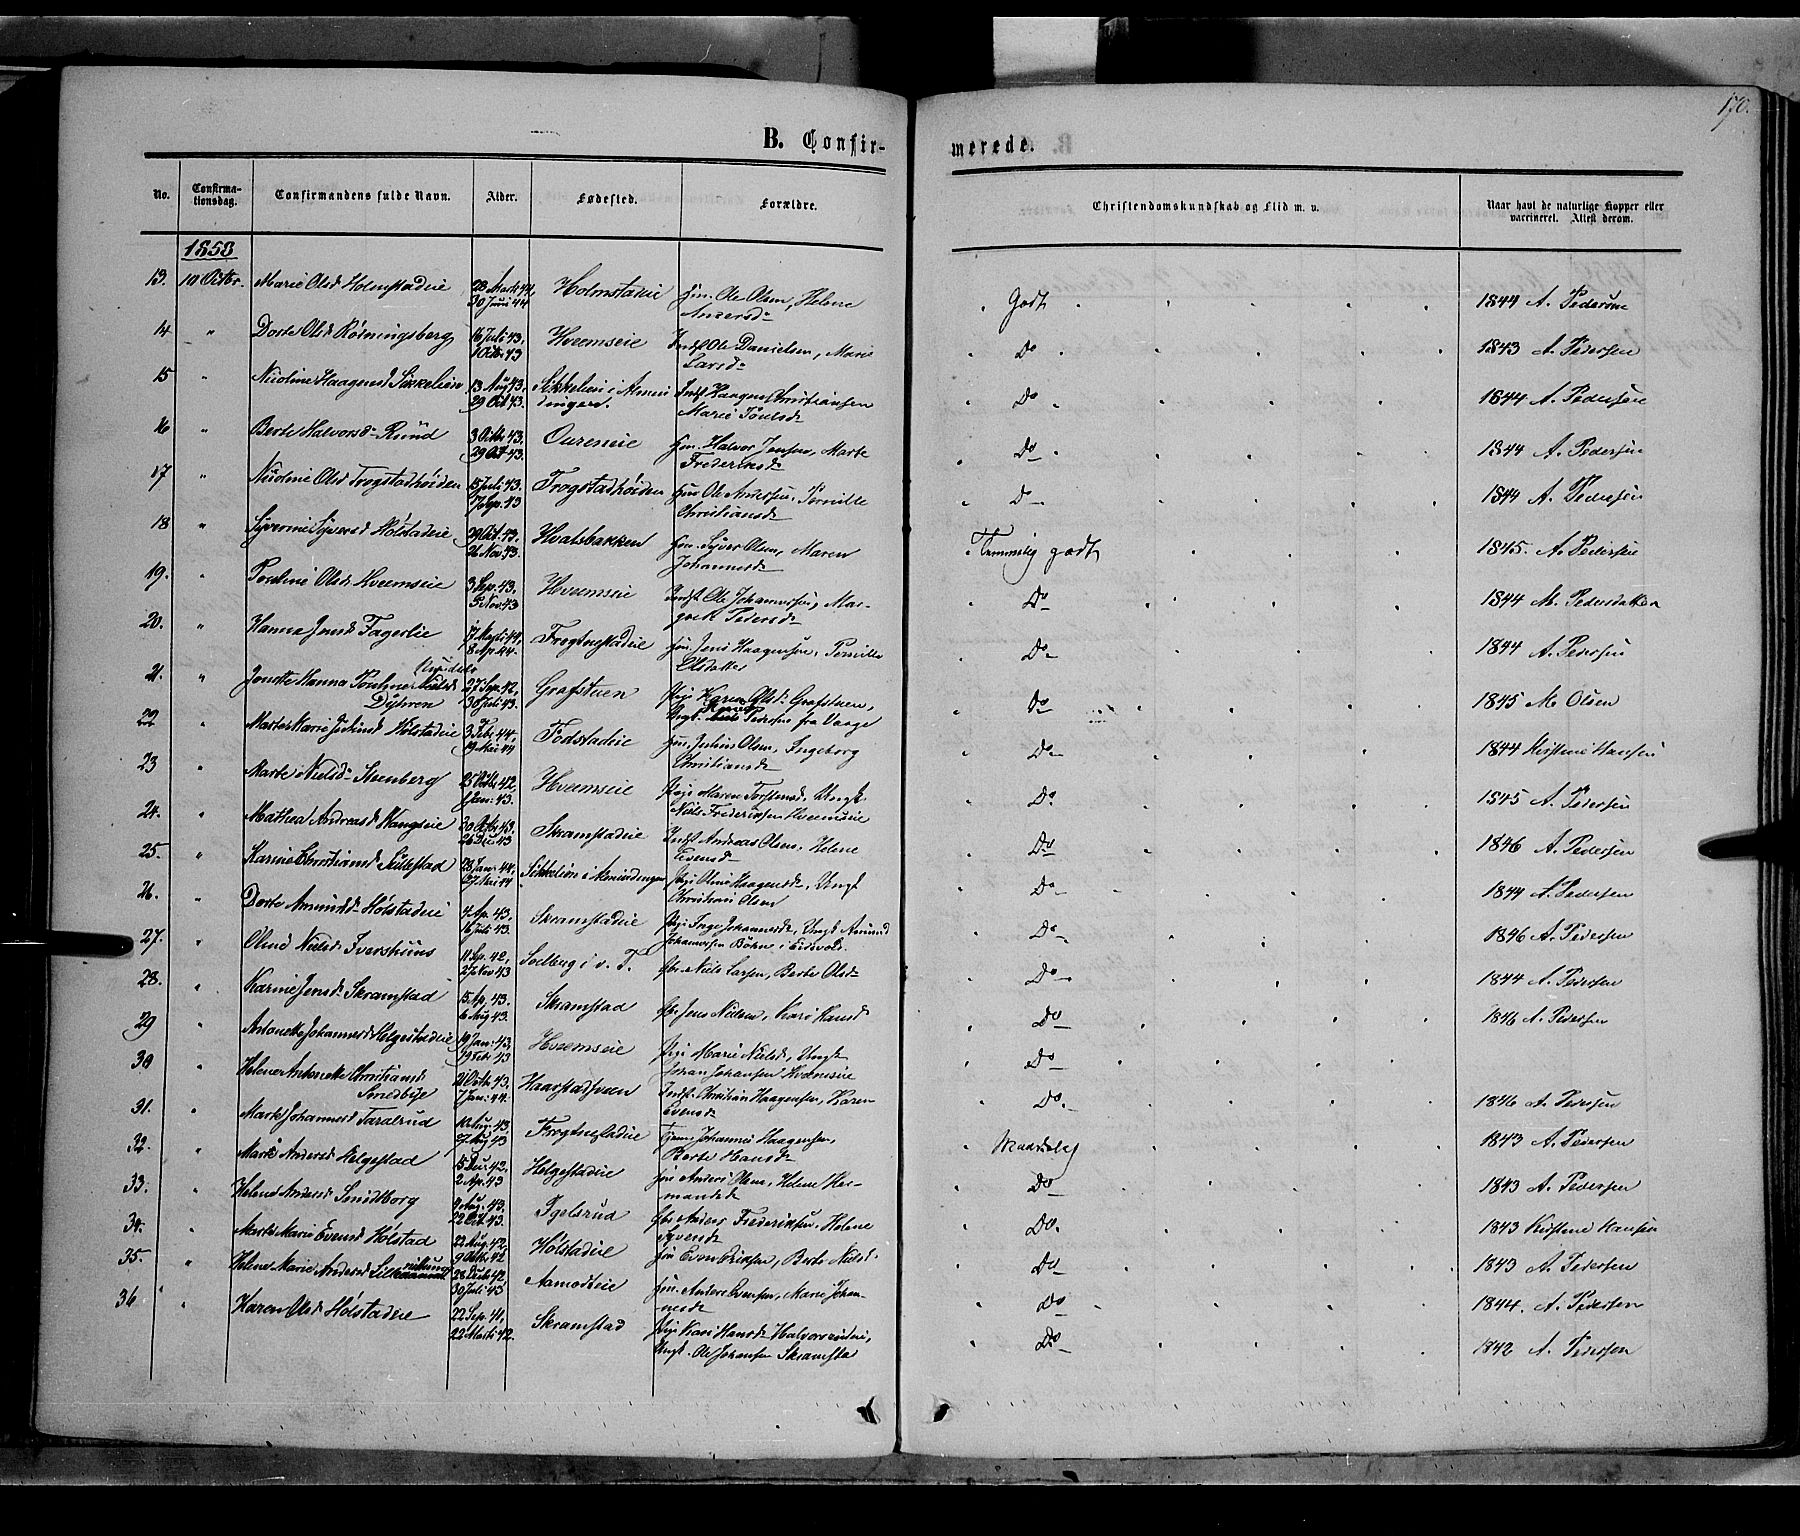 170.
B. Confir- merede.
No. Confirma-tionsdag. Confirmandens fulde Navn. Alder. Fødested. Forældre. Christendomskundskab og Flid m. v. Naar havt de naturlige Kopper eller vaccineret. Attest derom.
1858
13. 10 Octbr. Marie Olsd Holmstadeie 28 Marts 44, 30 Juni 44 Holmstadeie Hm. Ole Olsen, Helene Andersd. Godt 1844 A. Pedersen
14 " Dorte Olsd Kösningsberg 16 Juli 43. 1 Octr. 43 Hveemseie Indst. Ole Danielsen, Marie Larsd. Do 1843 A. Pedersen
15 " Nicoline Haagensd Sikkelien 13 Aug 43. 29 Oct 43. Sikkelien i Almendingen. Indst. Haagen Christiansen Marie Poulsd. Do 1844 A. Pedersen
16 " Berte Halvorsd. Rund 3 Octr 43. 29 Oct 43. Oureneie Hm. Halvor Jensen, Marte Frederiksd. Do 1844 A. Pedersen
17 " Nicoline Olsd Trogstadhöiden 15 Juli 43. 17 Sep. 43 Trogstadhöiden Hm Ole Andersen, Pernille Christiansd. Do 1844 A. Pedersen
18 " Syverine Syversd Holstadeie 29 Oct. 43. 26 Nov. 43. Hvalsbakken Hm. Syver Olsen, Maren Johannesd. Temmelig godt 1845. A. Pedersen
19. " Pauline Olsd. Hveemseie 3 Sep. 43. 5 Nov. 43 Hveemseie Indst Ole Johannesen, Margrete Pedersd. Do 1844 M. Pedersdatter
20. " Hanna Jensd Fagerlie 17 Marts 44, 8 Ap. 44. Frogtnestadeie Hm. Jens Haagensen, Pernille Olsdatter Do 1844 A. Pedersen
21. " Jonette Hanna Pouline Dyhren 27 Sep. 42, 30 Juli 43. Grafstuen Pige Karen Olsd. Grafstuen, Ungk. Pedersen fra Vaage Do 1845 M Olsen
22 " Marte Marie Juliusd Holstadeie 3 Febr. 44, 19 Mai 44 Fodstadeie Hm. Julius Olsen, Ingeborg Christiansd. Do 1844 Kirstene Hansen
23 " Marte Nielsd. Stenberg 25 Octr. 42, 1 Jan. 43. Hveemseie Pige Maren Torstensd, Ungk. Niels Frederiksen Hveemseie Do 1845 A. Pedersen
24. " Mathea Andreasd Vangseie 30 Octbr 43. 26 Dec 43 Skramstadeie Indst. Andreas Olsen, Helene Evensd. Do 1846 A. Pedersen
25. " Karine Christiansd. Sillestad 28 Jan. 44, 27 Mai 44 Sikkelien i Almindingen Pige Oline Haagensd. Ungk Christian Olsen Do 1844 A. Pedersen
26. " Dorte Amundsd. Holstadeie 4 Ap. 43. 16 Juli 43. Skramstadeie Pige Inge Johannesd. Ungk Amund Johannesen Böhn i Eidsvold. Do 1846 A. Pedersen
27. " Oline Nielsd Iverstuns 11 Sep. 42, 27 Nov 43 Soelberg i v. T. Gbr. Niels Larsen, Berte Olsd. Do 1844 A. Pedersen
28. " Karine Jensd. Skramstad 15 Ap. 43. 6 Aug 43 Skramstad Gbr Jens Nielsen, Kari Hansd. Do 1846 A. Pedersen
29 " Antonette Johannesd Helgestadeie 19 Jan. 43, 19 Febr 43 Hveemseie Pige Marie Nielsd, Ungk Johan Johansen Hveemseie Do
30 " Helene Antonette Christiansd Smedbye 21 Octb. 43. 7 Jan: 44. Haarstadsveen Indst. Christian Haagensen, Karen Evensd. Do. 1846 A. Pedersen
31. " Marte Johannesd Taralrud 10 Aug. 43, 27 Aug 43 Frogtnestadeie Johannes Haagensen, Berte Hansd. Maadelig 1843 A. Pedersen
32. " Marte Andersd Helgestad 15 Dec. 42, 2 Ap. 43 Helgestadeie Hm Anders Olsen, Helene Hermansd. Do 1843 A. Pedersen
33. " Helene Andersd Smidtborg 4 Aug. 43. 22 Oct. 43. Igelsrud Gbr. Anders Frederiksen, Helene Syversd. Do. 1843 Kirstene Hansen
34. " Marte Marie Evensd Holstad 23 Aug. 42, 9 Octbr. 42 Holstadeie Hm Even Eriksen, Berte Nielsd. Do 1843 A. Pedersen
35. " Helene Marie Andersd 28 Decb 42, 30 Juli 43 Aamodteie Hm. Anders Evensen, Marie Johannesd. Do 1844. A. Pedersen
36 " Karen Olsd Holstadeie 22 Sep. 41, 22 Marts 42. Skramstad Pige Kari Hansd. Ungk. Ole Johansen Skramsta Do 1842 A. Pedersen